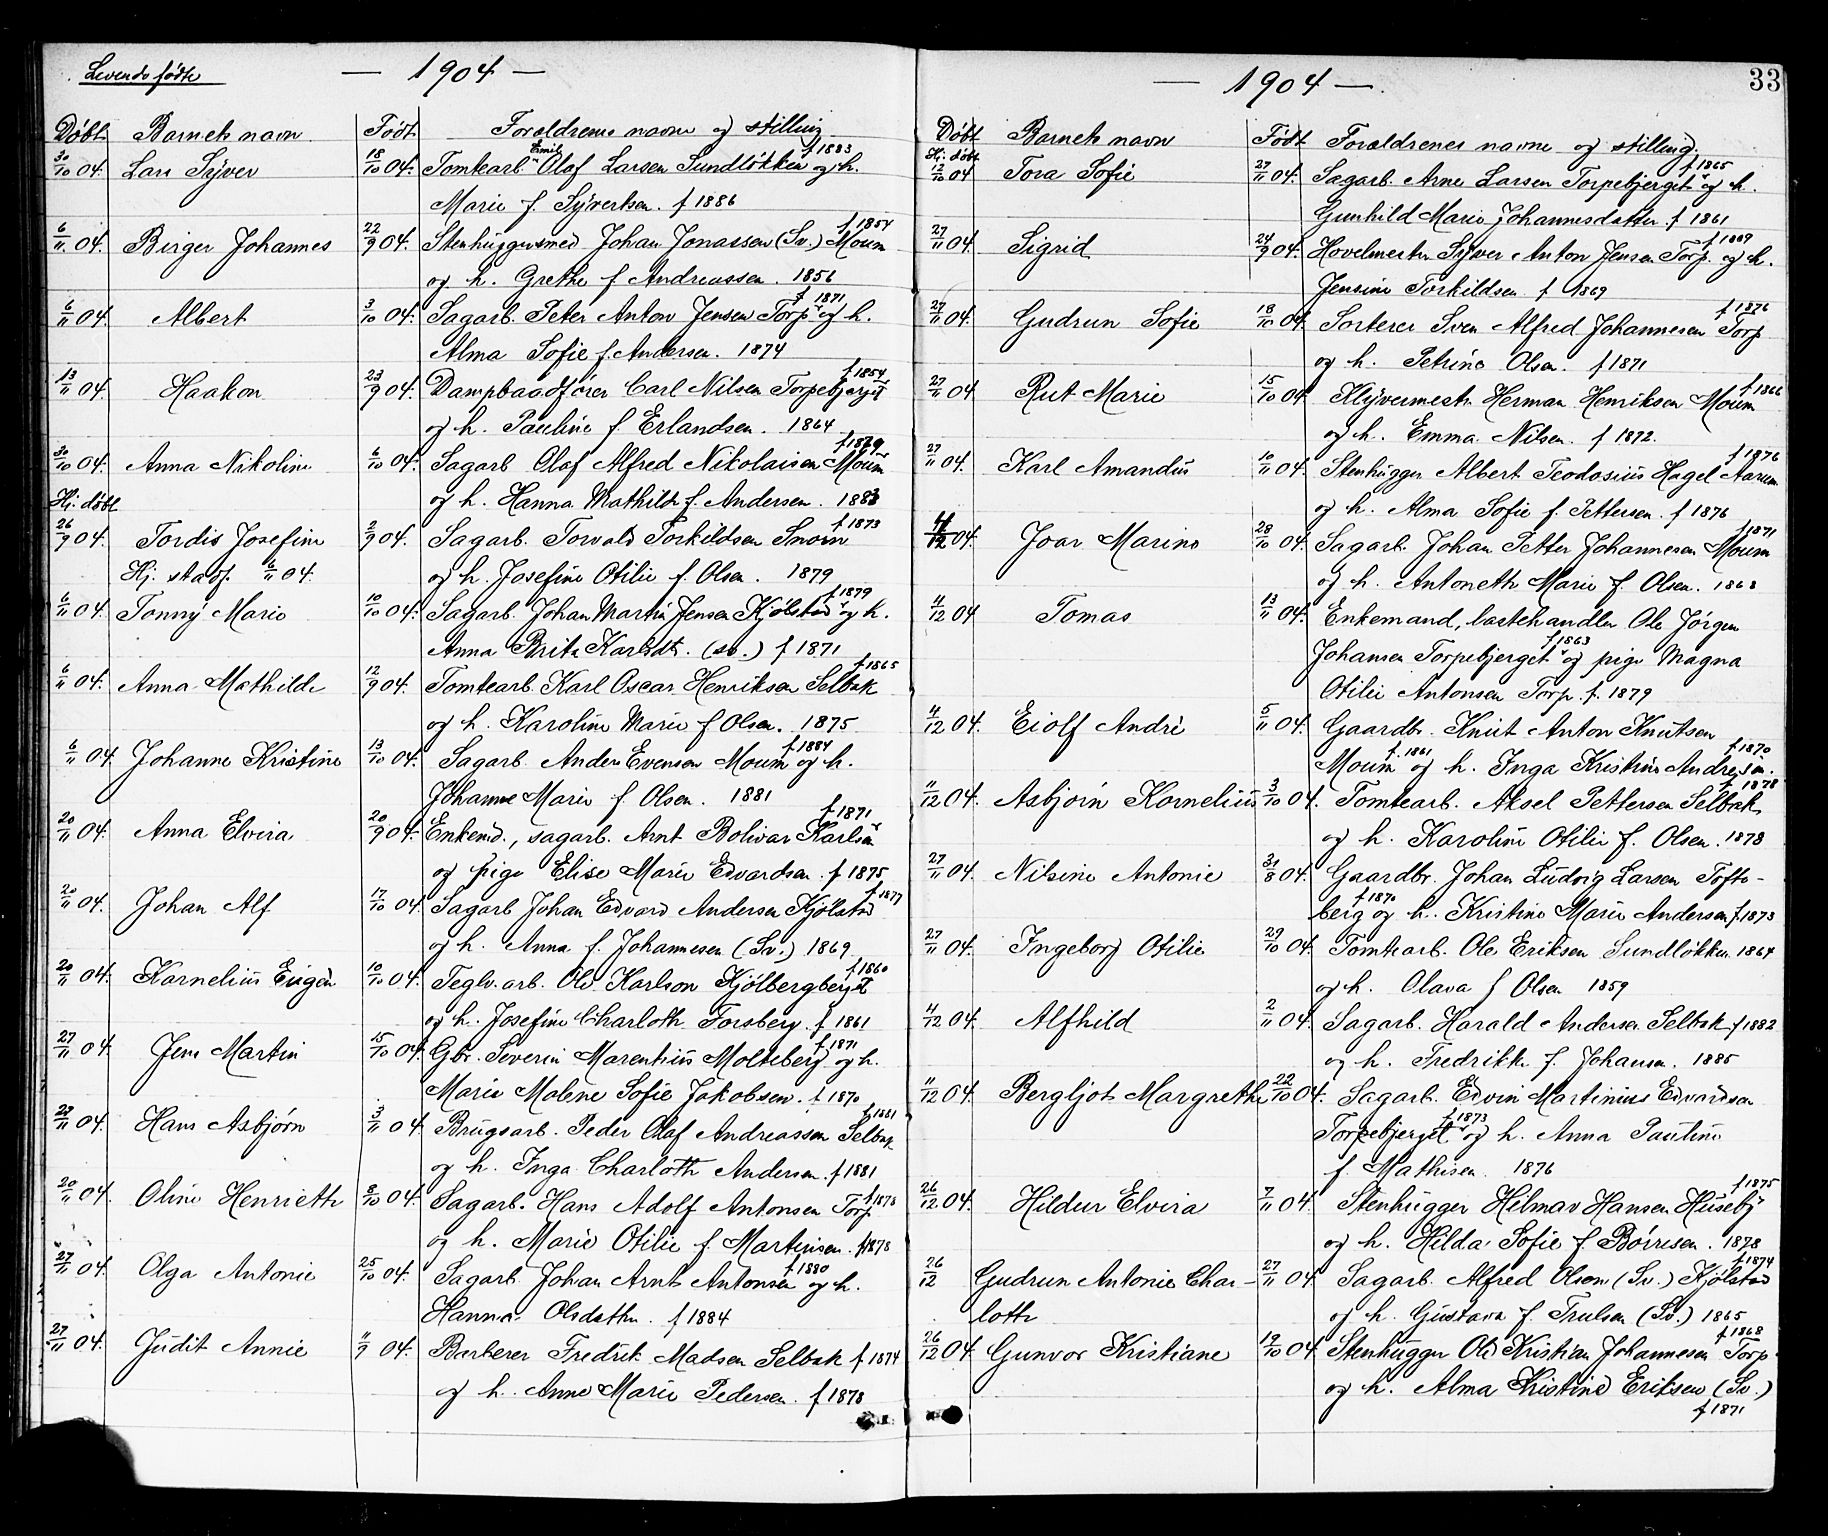 Levende fødte — 1904 —
Døbt Barnets navn Født Forældrenes navne og stilling
30/10 04. Lars Syver 18/10 04. Tomtearb. Emil Olaf Larsen Sundløkken f 1883 og h.
Marie f. Syvertsen. f 1886
6/11 04. Birger Johannes 22/9 04. Stenhuggersmed Johan Jonassen (Sv.) Moum f 1854
og h. Grethe f Andreassen. 1856
6/11 04. Albert 3/10 04. Sagarb. Peter Anton Jensen Torp f 1871 og h.
Alma Sofie f. Andersen. 1874
13/11 04. Haakon 23/9 04. Dampbaadfører Carl Nilsen Torpebjerget f 1854
og h. Pauline f. Erlandsen. 1864
30/10 04. Anna Nikoline 6/10 04. Sagarb Olaf Alfred Nikolaisen Moum f 1879
og h. Hanna Mathilde f. Andersen. 1883
Hj. døbt
26/9 04. Tordis Josefine 2/9 04. Sagarb. Torvald Torkildsen f 1873
Hj. stadf. 6/11 04. og h. Josefine Otilie f. Olsen. 1879
6/11 04. Tonny Marie 10/10 04. Sagarb. Johan Martin Jensen Kjølstad f 1879 og h.
Anna Brita Karlsdt. (sv.) f 1871
6/11 04. Anna Mathilde 12/9 04. Tomtearb. Karl Oscar Henriksen Selbak f 1865
og h. Karoline Marie f Olsen. 1875
6/11 04. Johanne Kristine 13/10 04. Sagarb. Anders Evensen Moum f 1884 og h.
Johanne Marie f. Olsen. 1881
20/11 04. Anna Elvira 20/9 04. Enkemd., sagarb. Arnt Bolivar Karlsen f 1871
og pige Elise Marie Edvardsen. f 1875
20/11 04. Johan Alf 17/10 04. Sagarb Johan Edvard Andersen Kjølstad f 1877
og h. Anna f. Johannesen (Sv.) 1869
20/11 04. Kornelius Eugen 10/10 04. Teglv. arb. Ole Karlson Kjølbergberget f 1860
og h. Josefine Charlotte Forsberg. f 1861
27/11 04. Jens Martin 15/10 04. Gbr. Severin Marentius Molteberg f 1871 og h.
Marie Malene Sofie Jakobsen. f 1870
27/11 04. Hans Asbjørn 3/11 04. Brugsarb. Peder Olaf Andreassen Selbak f 1881
og h. Inga Charlotte Andersen. f 1881
20/11 04. Oline Henriette 8/10 04. Sagarb. Hans Adolf Antonsen Torp f 1878
og h. Marie Otilie f. Martinsen. f 1878
27/11 04. Olga Antonie 25/10 04. Sagarb. Johan Arnt Antonsen f 1880 og h.
Hanna Olsdatter. f 1884
27/11 04. Judit Annie 11/9 04. Barberer Fredrik Madsen Selbak f 1874
og h. Anne Marie Pedersen. f 1878
— 1904 — 33
Døbt Barnets navn Født Forældrenes navne og stilling.
Hj. døbt
12/10 04 Tora Sofie 27/11 04. Sagarb. Arne Larsen Torpebjerget f 1865 og h.
Gunhild Marie Johannesdatter. f 1861
27/11 04. Sigrid 24/9 04. Hovelmester Syver Anton Jensen Torp. f 1869 og h.
Jensine Torkildsen f 1869
27/11 04. Gudrun Sofie 18/10 04. Sorterer Sven Alfred Johannesen Torp f 1876
og h. Petrine Olsen. f 1871
27/11 04. Rut Marie 15/10 04 Kløvermestr. Herman Henriksen Moum f 1866
og h. Emma Nilsen. f 1872.
27/11 04. Karl Amandus 10/11 04. Stenhugger Albert Teodosius Hagel Aarum f 1876
og h. Alma Sofie f. Pettersen. f 1876
4/12 04. Joar Marino 28/10 04. Sagarb. Johan Petter Johannesen Moum f 1871
og h. Antonette Marie f. Olsen. 1868
11/12 04 Tomas 13/11 04. Enkemand, lastehandler Ole Jørgen
Johansen Torpebjerget f 1863 og pige Magna
Otilie Antonsen Torp. f. 1879
4/12 04. Eiolf André 5/11 04. Gaardbr. Knut Anton Knutsen
Moum f. 1861 og h. Inga Kristine Andresen. f 1870
11/12 04. Asbjørn Kornelius 3/10 04. Tomtearb. Aksel Pettersen Selbak f 1878
og h. Karoline Otilie f. Olsen. 1878
27/11 04. Nilsine Antonie 31/8 04. Gaardbr. Johan Ludvig Larsen Tofte-
berg f 1870 og h. Kristine Marie Andersen f. 1873
27/11 04. Ingeborg Otilie 29/10 04. Tomtearb. Ole Eriksen Sundløkken 1864
og h. Olava f Olsen 1859
4/12 04. Alfhild 2/11 04. Sagarb. Harald Andersen Selbak f 1882
og h. Fredrikke f. Johansen. 1885
11/12 04. Bergljot Margrethe 22/10 04. Sagarb. Edvin Martinius Edvardsen
Torpebjerget f 1873 og h. Anna Pauline
f. Mathisen. 1876
26/12 04. Hildur Elvira 7/11 04. Stenhugger Hilmar Hansen Huseby f 1875
og h. Hilda Sofie f. Børresen. 1878
26/12 Gudrun Antonie Char- 27/11 04. Sagarb. Alfred Olson (Sv.) Kjølstad f 1874
lotte og h. Gustava f. Trulsen (Sv.) 1865
26/12 04. Gunvor Kristiane 19/10 04 Stenhugger Ole Kristian Johannesen Torp f 1868
og h. Alma Kristine Eriksen (Sv.)
f 1871